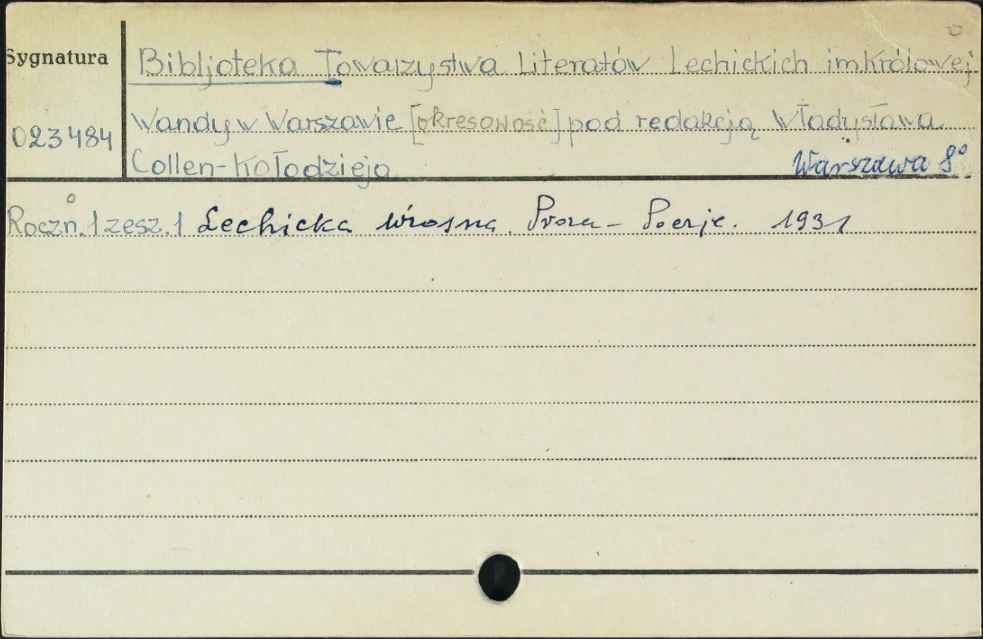 Sygnatura
Bibljoteka Towarzystwa Literatów Lechickich im królowej
023484
Wandy w Warszawie [okresowość] pod redakcją Władysława
Collen-Kołodzieja
Warszawa 8°
Roczn. 1 zesz. 1 Lechicka wiosna. Proza - Poezje. 1931